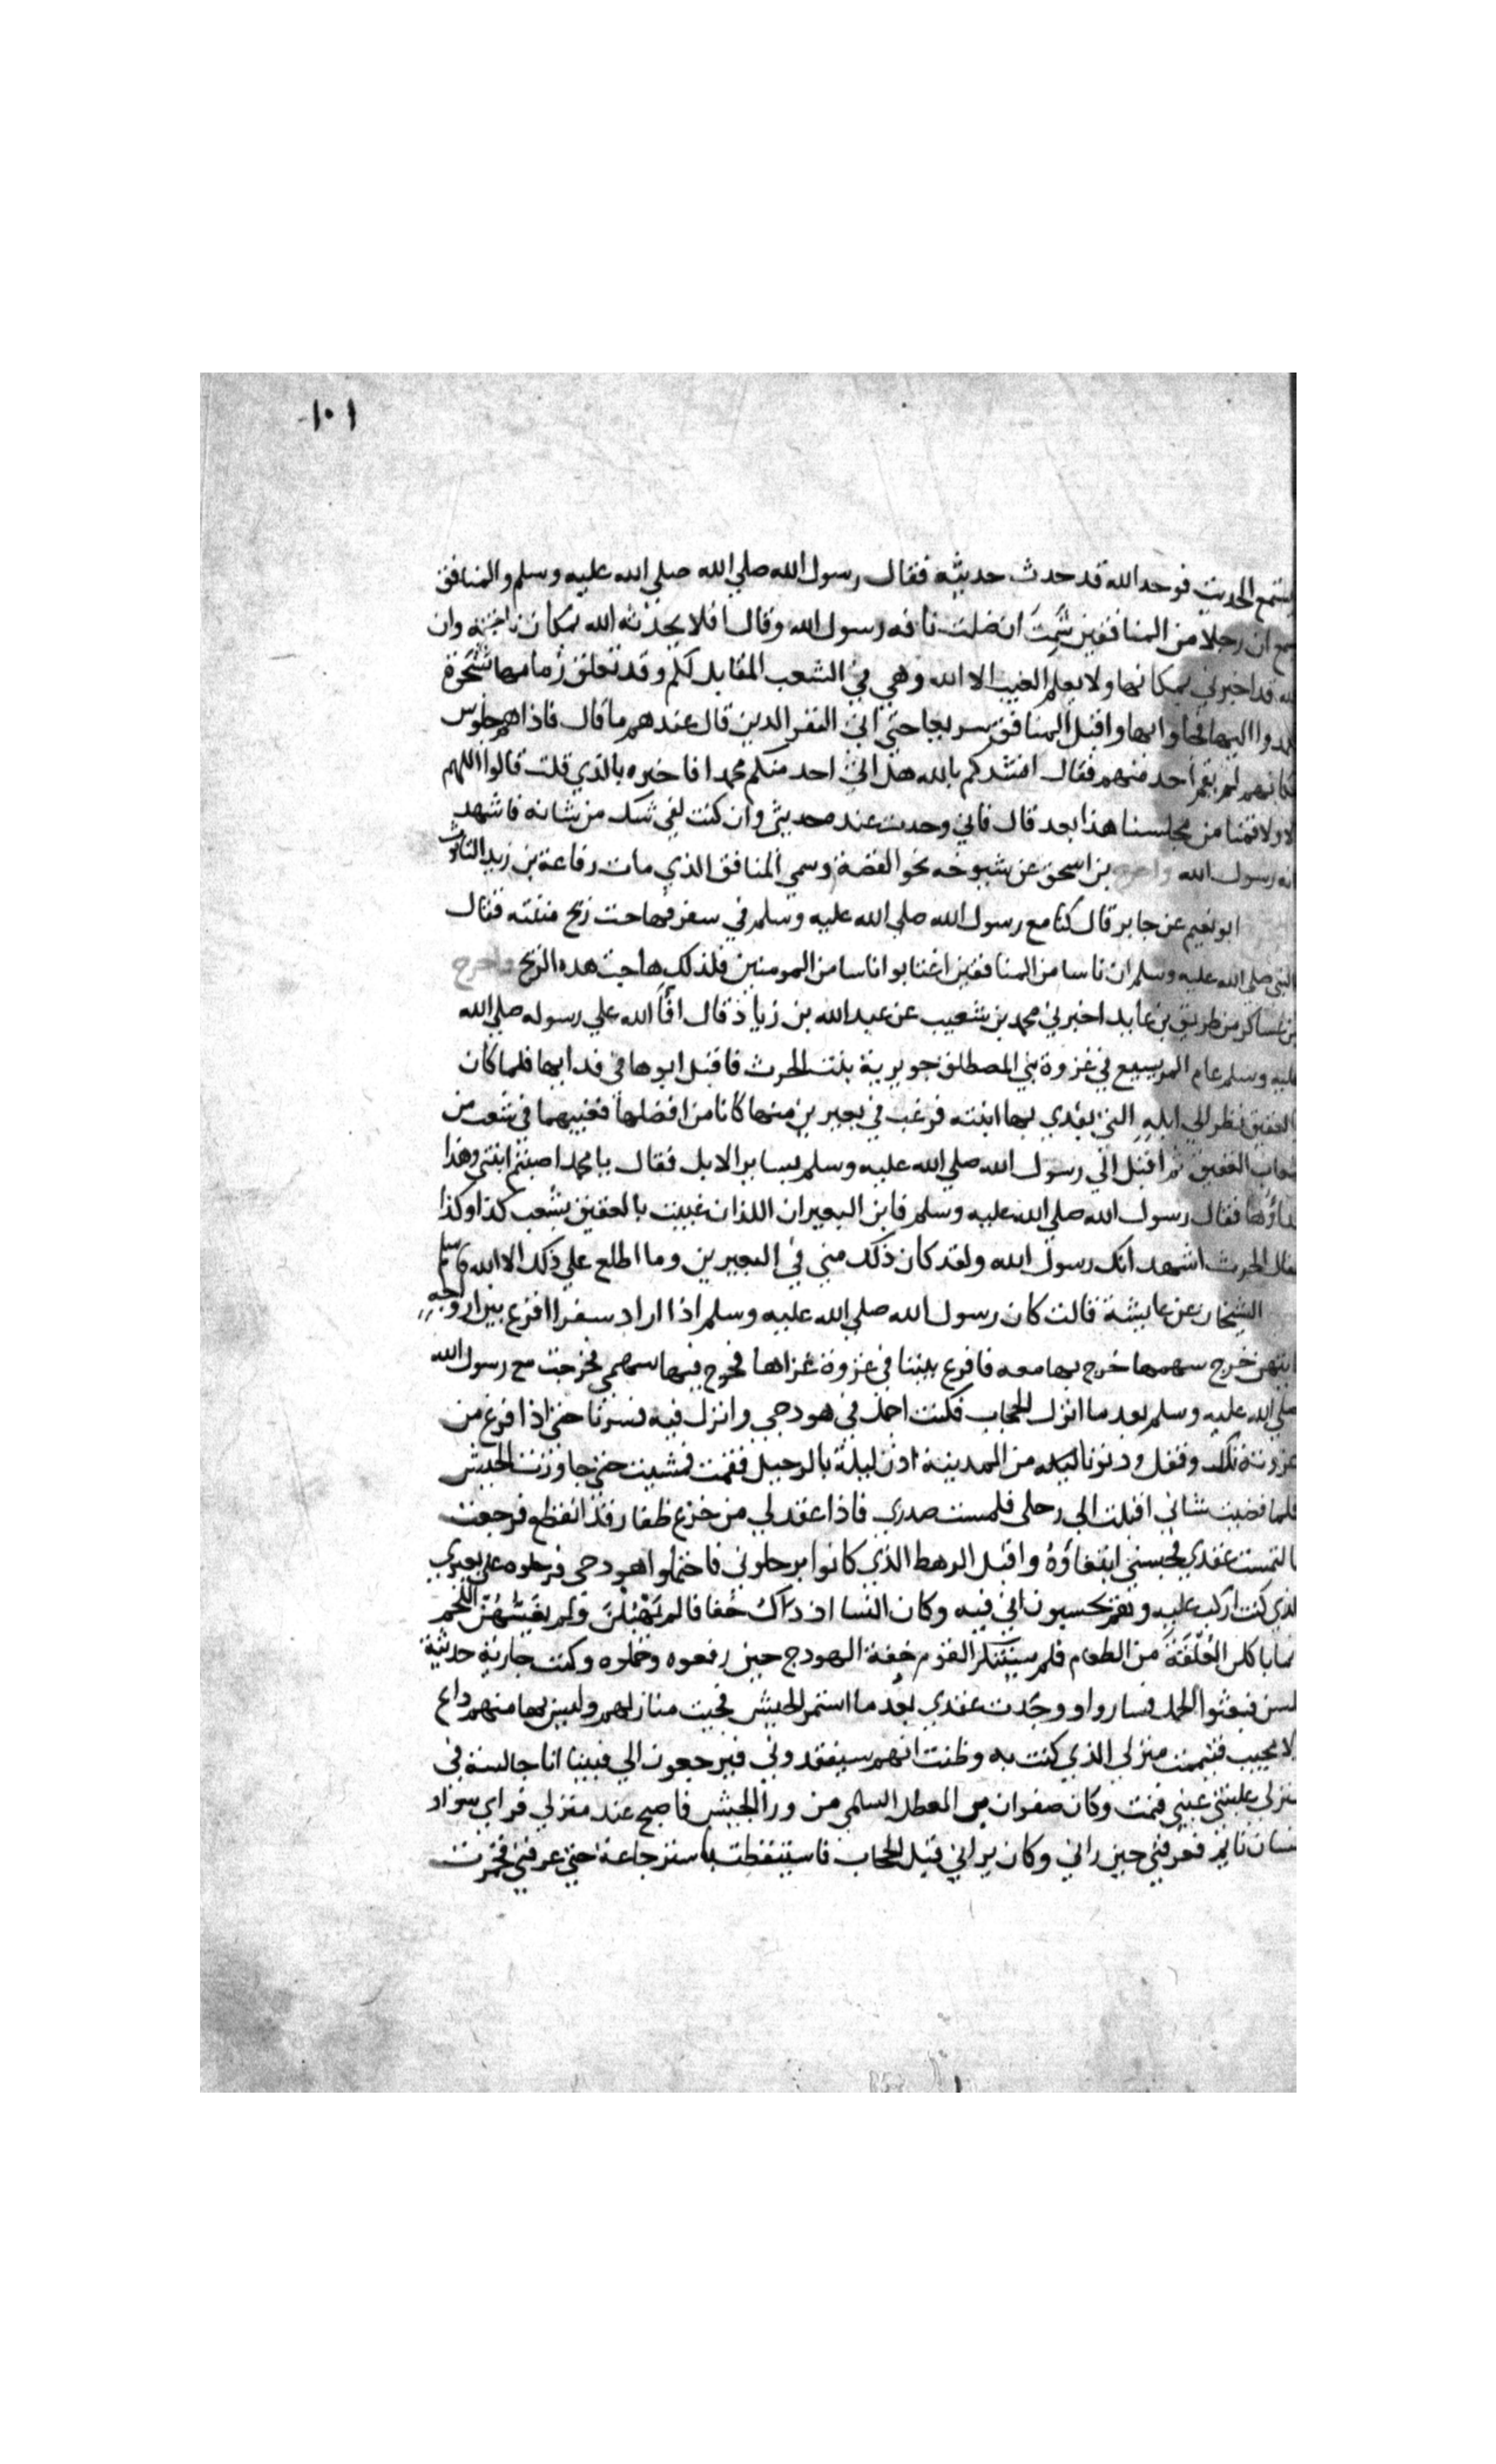 ١٠١
يستمع الحديث فوجد الله قد حدث حديثه فقال رسول الله صلي الله صلي الله عليه وسلم والمنافق
يسمع ان رجلا من المنافقين شَمِتَ ان ضلت ناقه رسول الله وقال افلا يحدثه الله بمكان ناقته وان
الله قد اخبرني بمكانها ولا يعلم الغيب الا الله وهي في الشعب المقابل لكم وقد تعلق زمامها بشجرة
فعمدوا اليها فجاوا بها واقبل المنافق سريعا حتي اتي النفر الذين قال عندهم ما قال فاذا هم جلوس
مكانهم لم يقم احد منهم فقال انشدكم بالله هل اتي احد منكم محمدا فاخبره بالذي قلت قالوا اللهم
لا ولا قمنا من مجلسنا هذا بعد قال فاني وجدت عنده حديثي وان كنت لفي شك من شانه فاشهد
انه رسول الله واخرج بن اسحق عن شيوخه نحو القصة وسمي المنافق الذي مات رفاعة بن زيد التابوت
ابو نعيم عن جابر قال كنا مع رسول الله صلي الله عليه وسلم في سفر فهاجت ريح منتنه فقال
النبي صلي الله عليه وسلم ان ناسا من المنافقين اغتابوا اناسا من المومنين فلذلك هاجت هذه الريح واخرج
بن عساكر من طريق بن عايد اخبرني محمد بن شعيب عن عبد الله بن زياد قال افآ الله علي رسوله صلي الله
عليه وسلم عام المريسيع في غزوة بني المصطلق جويرية بنت الحرث فاقبل ابوها في فدايها فلما كان
بالعقيق نظر الي ابله التي يفدي بها ابنته فرغب في بعيرين منها كانا من افضلها فغيبهما في شعب من
شعاب العقيق ثم اقبل الي رسول الله صلي الله عليه وسلم بساير الابل فقال يا محمد اصبتم ابنتي وهذا
فداؤها فقال رسول الله صلي الله عليه وسلم فاين البعيران اللذان غيبت بالعقيق بشعب كذا وكذا
فقال الحرث اشهد انك رسول الله ولقد كان ذلك مني في البعيرين وما اطلع علي ذلك الا الله فاسلم
الشيخان عن عايشة قالت كان رسول الله صلي الله عليه وسلم اذا اراد سفرا اقرع بين ازواجه
ايتهن خرج سهمها خرج بها معه فاقرع بيننا في غزوة غزاها فخرج فيها سهمي فخرجت مع رسول الله
صلي الله عليه وسلم بعد ما انزل الحجاب فكنت احمل في هودجي وانزل فيه فسرنا حتي اذا فرغ من
غزوته تلك وقفل ودنونا ليله من المدينة اذن ليلة بالرحيل فقمت فمشيت حتي جاوزت الجيش
فلما قضيت شاني اقبلت الي رحلي فلمست صدري فاذا عقد لي من خزع ظفار قد انقطع فرجعت
فالتمست عقدي فحبسني ابتغاؤه واقبل الرهط الذي كانوا يرحلوني فاحتملوا هودجي فرحلوه علي بعيري
الذي كنت اركب عليه وهم يحسبون اني فيه وكان النسا اذ ذاك خفافا لم يَهْبُلْنَ ولم يَغْشَهُنّ اللحم
انما ياكلن العُلْقَةَ من الطعام فلم يستنكر القوم خفة الهودج حين رفعوه وحملوه وكنت جارية حديثة
السن فبعثوا الجمل فساروا ووجدت عقدي بعد ما استمر الجيش فجيت منازلهم وليس بها منهم داع
ولا مجيب فتيممت منزلي الذي كنت به وظنت انهم سيفقدوني فيرجعون الي فبينا انا جالسة في
منزلي غلبتني عيني فنمت وكان صفوان بن المعطل السلمي من ورا الجيش فاصبح عند منزلي فراي سواد
انسان نايم فعرفني حين راني وكان يراني قبل الحجاب فاستيقظت باسترجاعه حتي عرفني فخمرت